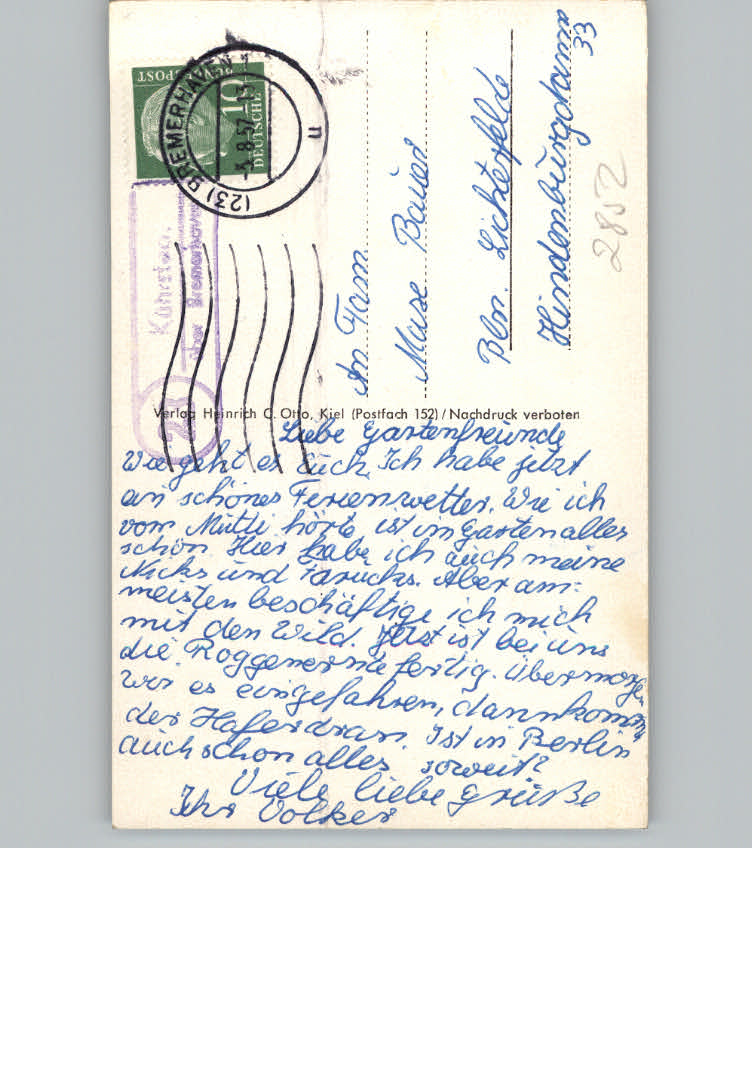 DEUTSCHE
BUNDESPOST
10
(23) BREMERHAVEN 1
-3.8.57.-13
n
über Bremerhaven
An Fam.
Maxe Bauer
Bln. Lichterfelde
Hindenburgdamm
33
2852
Verlag Heinrich C. Otto, Kiel (Postfach 152) / Nachdruck verboten
Liebe Gartenfreunde
Wie geht es Euch. Ich habe jetzt
ein schönes Ferienwetter. Wie ich
von Mutti hörte ist im Garten alles
schön. Hier habe ich auch meine
Nicks und Farucks. Aber am
meisten beschäftige ich mich
mit den Wild. Jetzt ist bei uns
die Roggenernte fertig. Übermorgen
wir es eingefahren, dann kommt
der Hafer dran. Ist in Berlin
auch schon alles soweit?
Viele liebe Grüße
Ihr Volker